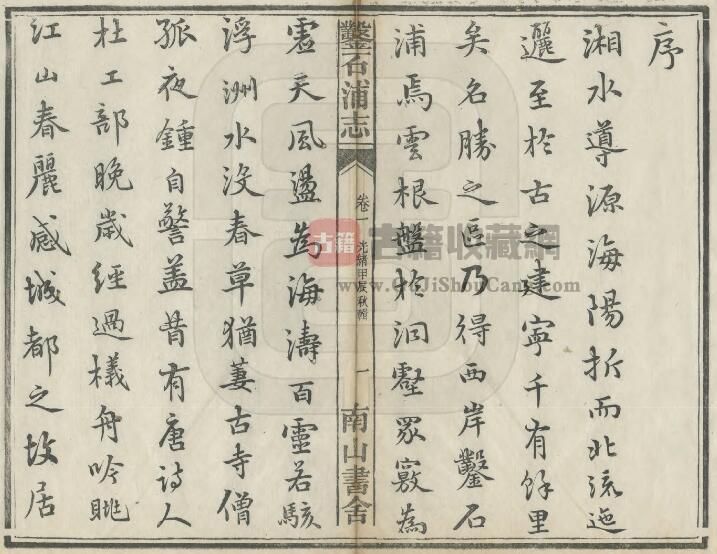 序
湘水導源海陽折而北流迤
邐至於古之建寧千有餘里
矣名勝之區乃得西岸鑿石
浦焉雲根盤於洞壑眾竅為
鑿石浦志
卷一
光緒甲辰秋輯
一
南山書舍
虛天風盪為海濤百靈若駭
浮洲水没春草猶萋古寺僧
孤夜鍾自警盖昔有唐詩人
杜工部晚歲經過檥舟吟眺
江山春麗感城都之故居
古籍
古籍收藏網
www.GuJiShouCang.com